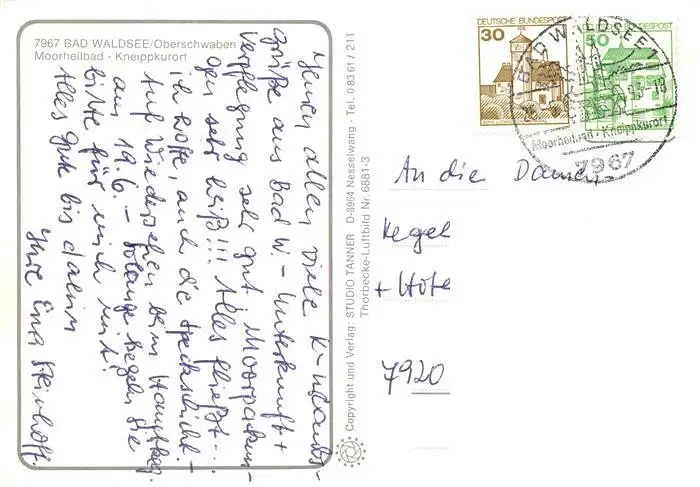 7967 BAD WALDSEE/Oberschwaben
Moorheilbad - Kneippkurort
Ihnen allen viele K-urlaubs-
grüße aus Bad W. - Unterkunft +
Verpflegung sehr gut Moorpackun-
gen sehr heiß!!! Alles fließt...
ich hoffe, auch die Speckschicht. -
Auf Wiedersehen beim
am 19.6. - Solange kegeln Sie
bitte für mich mit!
Alles Gute bis dahin
Ihre Erna Steinhoff.
Copyright und Verlag: STUDIO TANNER D-8964 Nesselwang - Tel. 0 83 61 / 211
Thorbecke-Luftbild Nr. 6881-3
DEUTSCHE BUNDESPOST
30
50
BAD WALDSEE 1
-18
Moorheilbad - Kneippkurort
7967
An die Damen-
Kegel
+ Hote
7920